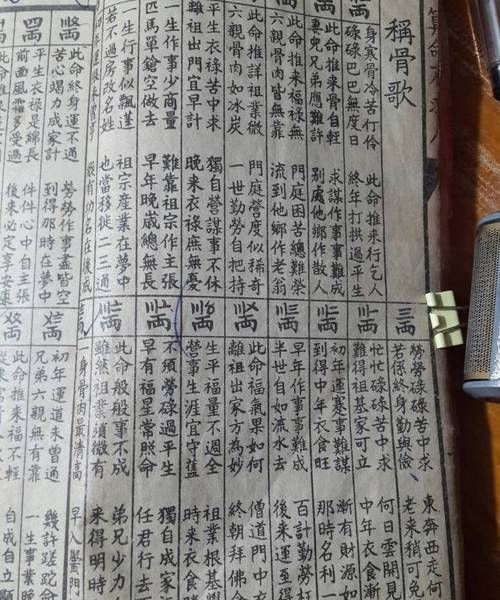 稱骨歌
身寒骨冷苦行伶 此命推來行乞人
碌碌巴巴無度日 終年打拱過平生
此命推來骨自輕 求謀作事事難成
妻兒兄弟應難許 別處他鄉作散人
此命推來福祿無 門庭困苦總難榮
六親骨肉皆無靠 流到他鄉作老翁
此命推詳祖業微 門庭營度似稀奇
六親骨肉如冰炭 一世勤勞自把持
平生衣祿苦中求 獨自營謀事不休
離祖出門宜早計 晚來衣祿庶無憂
一生作事少商量 難靠祖宗作主張
匹馬單鎗空做去 早年晚歲總無長
一生行事似飄蓬 祖宗產業在夢中
若不過房改名姓 也當移徙二三通
此命終身運不通 勞勞作事盡皆空
苦心竭力成家計 到得那時在夢中
平生衣祿是綿長 件件心中自主張
前面風霜多受過 後來必定享安康
三両
勞勞碌碌苦中求 東奔西走何
若係終身勤與儉 老來稍可免
忙忙碌碌苦中求 何日雲開見
難得祖基家可立 中年衣食漸
初年運蹇事難謀 漸有財源如
到得中年衣食旺 那時名利一
早年作事事難成 百計勤勞枉
半世自如流水去 後來運至得
此命福氣果如何 僧道門中衣
離祖出家方為妙 終朝拜佛念
生平福量不週全 祖業根基覺
營事生涯宜守舊 時來衣食
不須勞碌過平生 獨自成家
早有福星常照命 任君行去
此命般般事不成 弟兄少力
雖然祖業須微有 來得明時
身骨肉最清高 早入黌門
初年運道未曾通 幾許蹉跎命
兄弟六親無有靠 一生事業晚
此命推來福不輕 自成自立顯